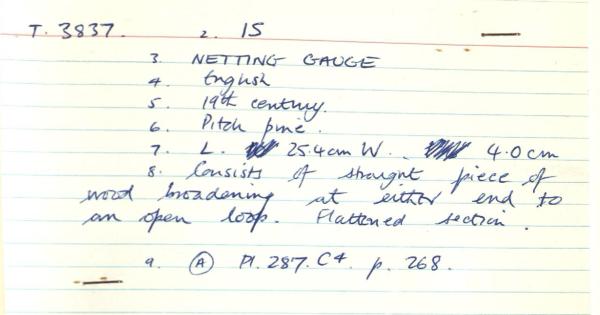 T. 3837. 2. 15
3. NETTING GAUGE
4. English
5. 19th century.
6. Pitch pine.
7. L. 25.4cm W. 4.0cm
8. Consists of straight piece of
wood broadening at either end to
an open loop. Flattened section.
9. A Pl. 287. C4. p. 268.